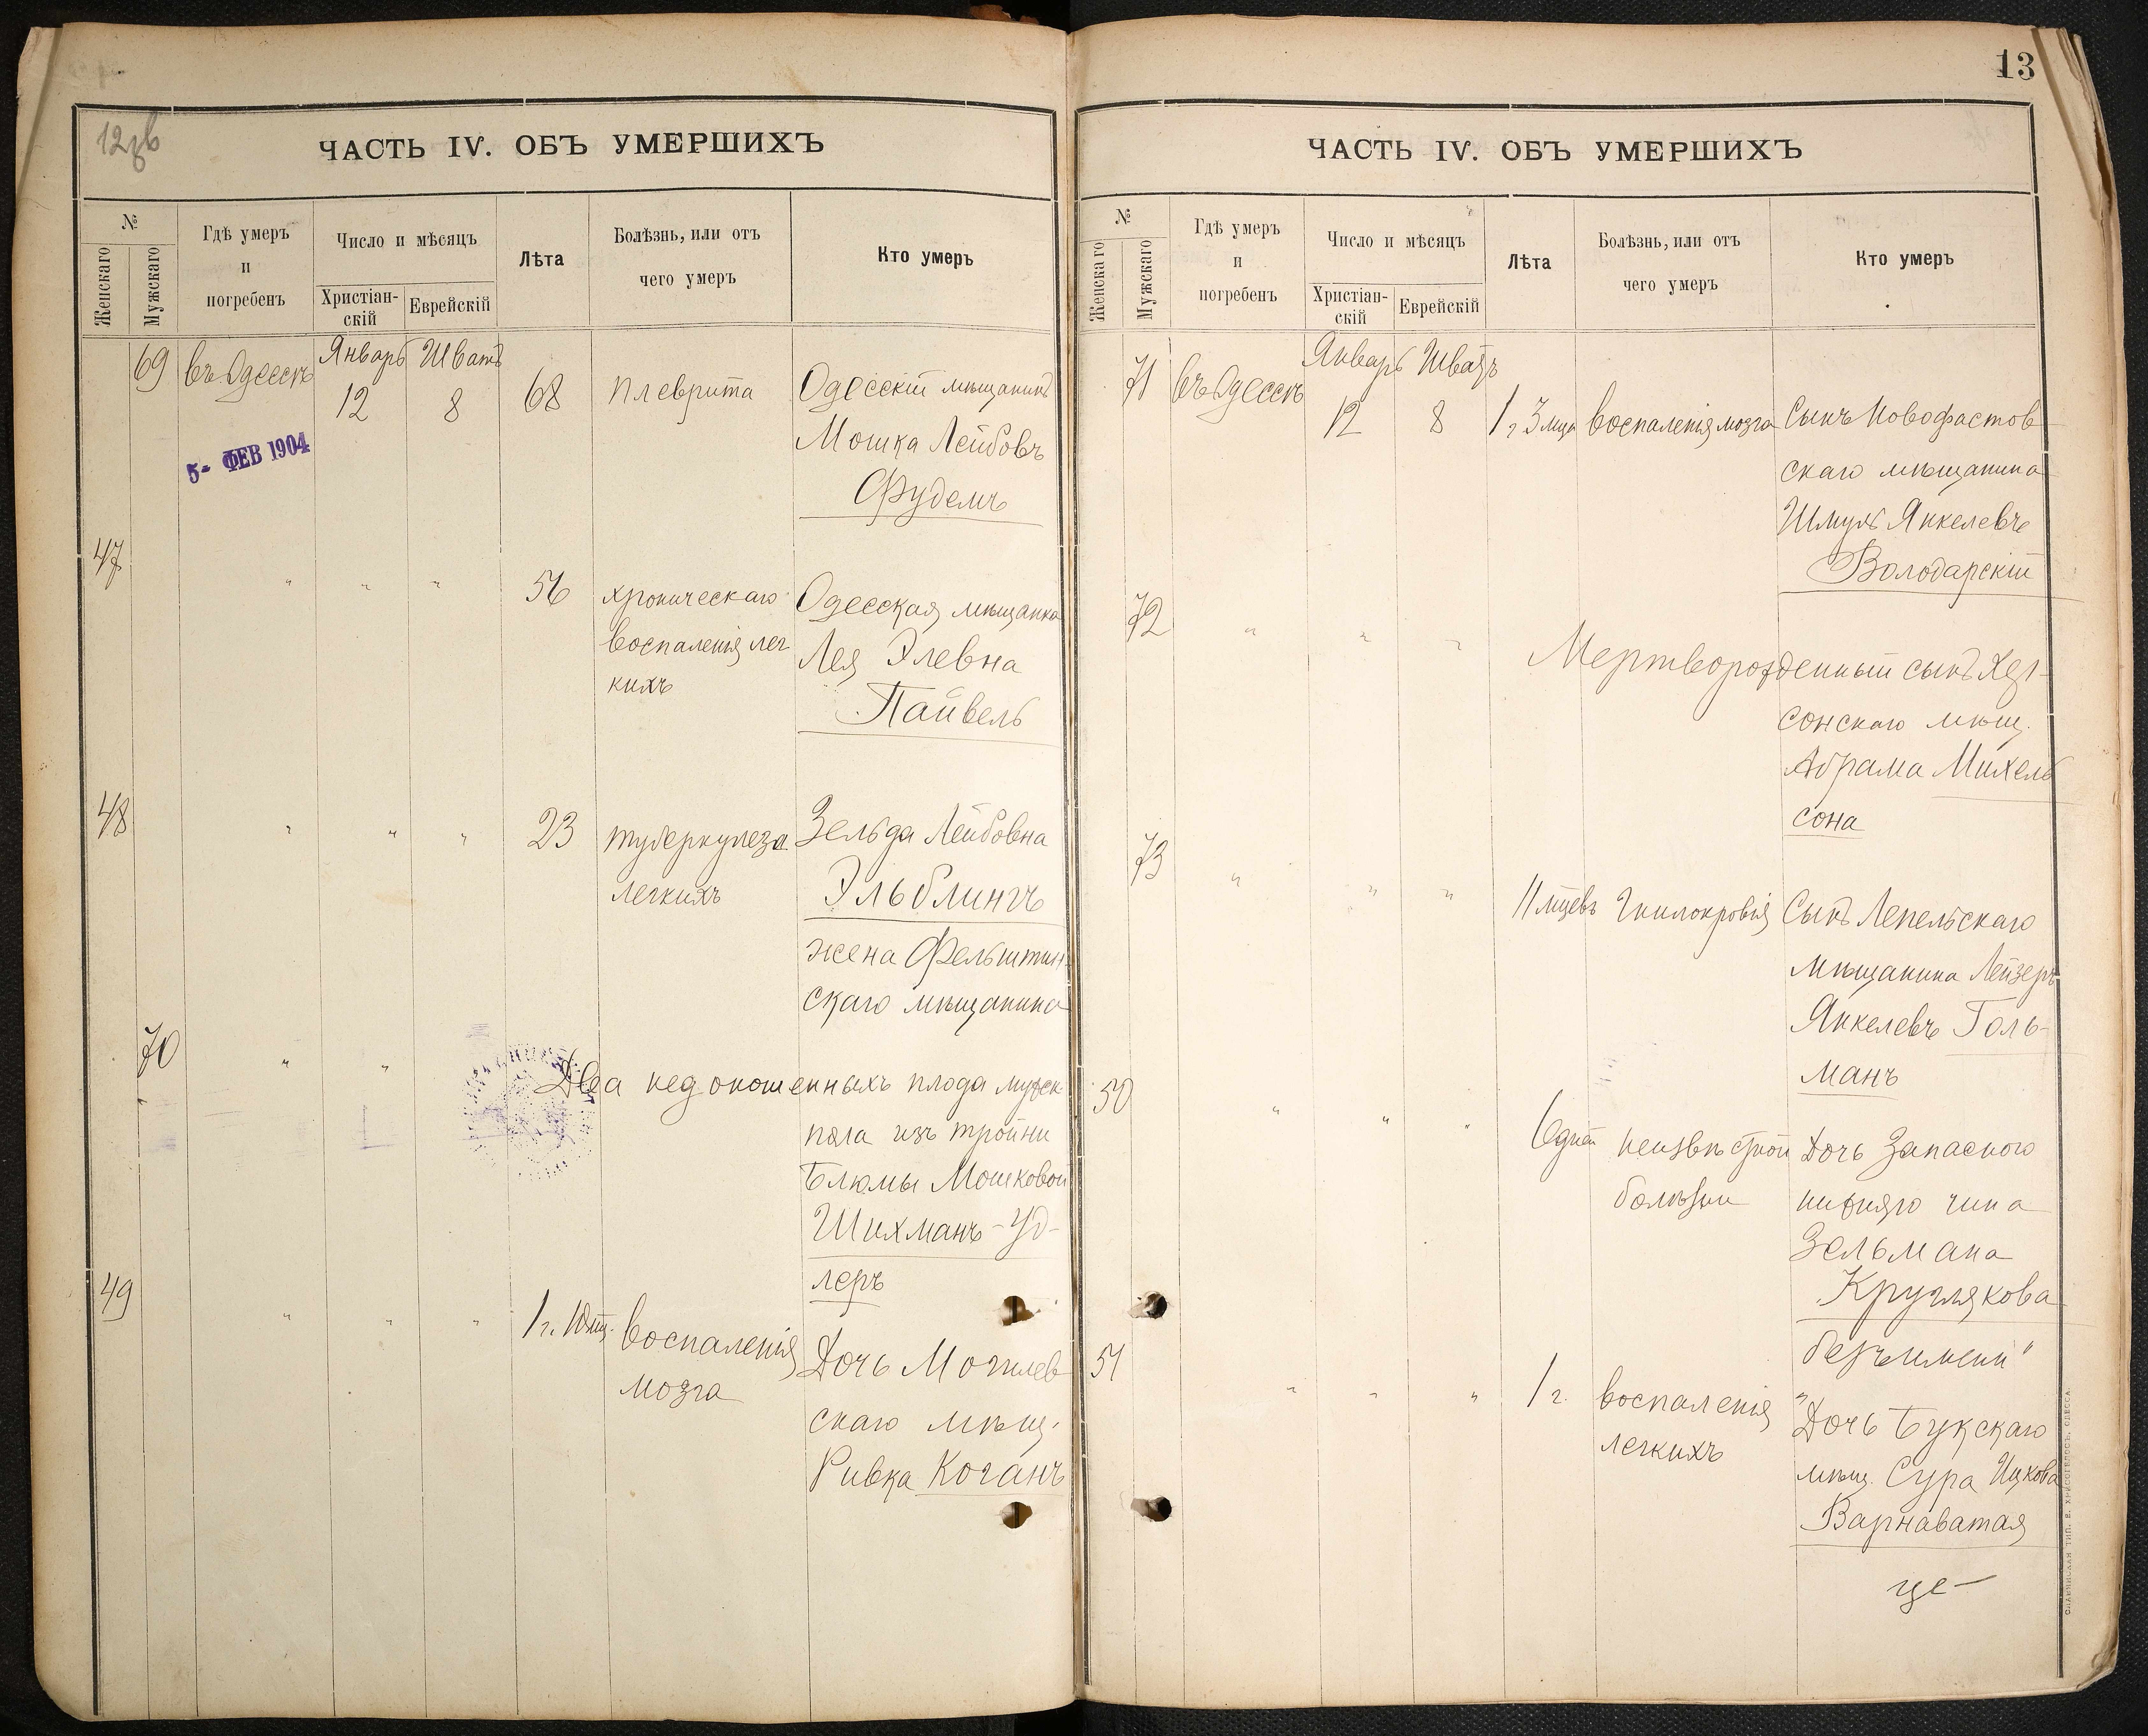 12об
ЧАСТЬ IV. ОБЪ УМЕРШИХЪ
№
Женскаго
Мужскаго
Гдѣ умеръ
и
погребенъ
Число и мѣсяцъ
Христіан-
скій
Еврейскій
Лѣта
Болѣзнь, или отъ
чего умеръ
Кто умеръ
69 въ Одессѣ Январь Шватъ
12 8 68 плеврита Одесскій мѣщанинъ
Мошка Лейбовъ
Фудемъ
5- ФЕВ 1904
47 " " " 56 хроническаго Одесская мѣщанка
воспаленія лег Лея Элевна
кихъ Пайвель
48 " " " 23 туберкулеза Зельда Лейбовна
легкихъ Эльблингъ
жена Фельштин-
скаго мѣщанина
70 " " Два недоношенныхъ плода мужск
пола изъ тройни
Блюмы Мошковой
Шихманъ-Уд-
леръ
49 " " " 1 г. 10 мц. воспаленія Дочь Могилев
мозга скаго мѣщ.
Ривка Коганъ
13
ЧАСТЬ IV. ОБЪ УМЕРШИХЪ
№
Женскаго
Мужскаго
Гдѣ умеръ
и
погребенъ
Число и мѣсяцъ
Христіан-
скій
Еврейскій
Лѣта
Болѣзнь, или отъ
чего умеръ
Кто умеръ
71 въ Одессѣ Январь Шватъ
12 8 1 г 3 мца воспаленія мозга Сынъ Новофастов
скаго мѣщанина
Шмуль Янкелевъ
Володарскій
72 " " " Мертворожденный сынъ Хер-
сонскаго мѣщ.
Абрама Михель
сона
73 " " " 11 мцевъ Гнилокровія Сынъ Лепельскаго
мѣщанина Лейзеръ
Янкелевъ Голь-
манъ
50 " " " 6 дней неизвѣстной Дочь Запасного
болѣзни нижняго чина
Зельмана
Круглякова
"безъ имени"
51 " " " 1 г. воспаленія Дочь Букскаго
легкихъ мѣщ. Сура Ицкова
Варнаватая
ХРИСОГЕЛОСЪ, ОДЕССА.